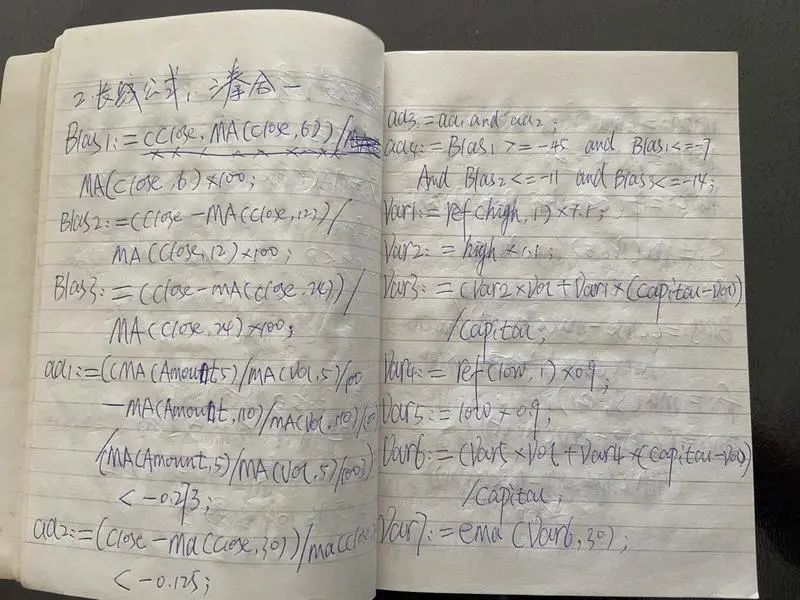 2.长线公式,三拳合一
BIas1:=(Close,MA(Close,6))/
MA(Close,6)×100;
BIas2:=(Close-MA(Close,12))/
MA(Close,12)×100;
BIas3:=(Close-MA(Close,24))/
MA(Close,24)×100;
aa1:=((MA(Amount,5)/MA(Vol,5)/100
-MA(Amount,110)/MA(Vol,110)/100
/(MA(Amount,5)/MA(Vol,5)/100))
<-0.273;
aa2:=(Close-ma(Close,30))/ma(Close
<-0.125;
aa3:=aa1 and aa2;
aa4:=BIas1>=-45 and BIas1<=-7
And BIas2<=-11 and BIas3<=-14;
Var1:=ref(high,1)×1.1;
Var2:=high×1.1;
Var3:=(Var2×Vol+Var1×(Capital-Vol))
/Capital;
Var4:=ref(low,1)×0.9;
Var5:=low×0.9;
Var6:=(Var5×Vol+Var4×(Capital-Vol))
/Capital;
Var7:=ema(Var6,30);